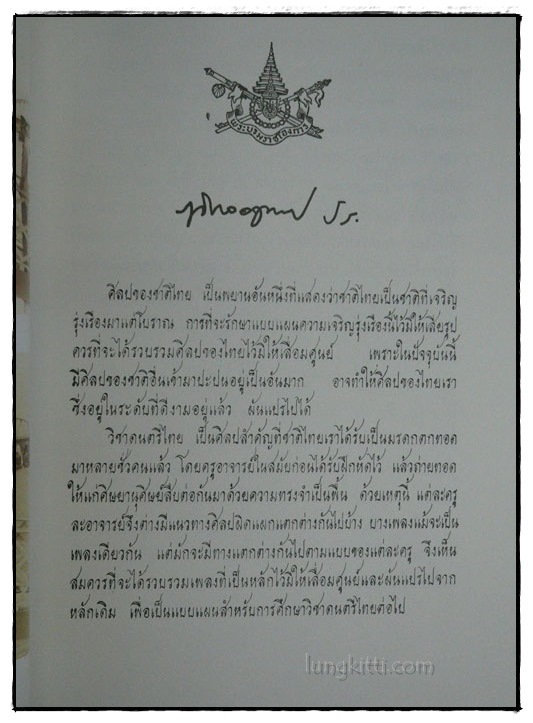 พระบรมราชโองการ
ภูมิพลอดุลยเดช ป.ร.
ศิลปของชาติไทย เป็นพยานอันหนึ่งที่แสดงว่าชาติไทยเป็นชาติที่เจริญ
รุ่งเรืองมาแต่โบราณ การที่จะรักษาแบบแผนความเจริญรุ่งเรืองนี้ไว้มิให้เสียรูป
ควรที่จะได้รวบรวมศิลปของไทยไว้มิให้เสื่อมศูนย์ เพราะในปัจจุบันนี้
มีศิลปของชาติอื่นเข้ามาปะปนอยู่เป็นอันมาก อาจทำให้ศิลปของไทยเรา
ซึ่งอยู่ในระดับที่ดีงามอยู่แล้ว ผันแปรไปได้
วิชาดนตรีไทย เป็นศิลปสำคัญที่ชาติไทยเราได้รับเป็นมรดกตกทอด
มาหลายชั่วคนแล้ว โดยครูอาจารย์ในสมัยก่อนได้รับฝึกหัดไว้ แล้วถ่ายทอด
ให้แก่ศิษยานุศิษย์สืบต่อกันมาด้วยความทรงจำเป็นพื้น ด้วยเหตุนี้ แต่ละครู
ละอาจารย์จึงต่างมีแนวทางศิลปผิดแผกแตกต่างกันไปบ้าง บางเพลงแม้จะเป็น
เพลงเดียวกัน แต่มักจะมีทางแตกต่างกันไปตามแบบของแต่ละครู จึงเห็น
สมควรที่จะได้รวบรวมเพลงที่เป็นหลักไว้มิให้เสื่อมศูนย์และผันแปรไปจาก
หลักเดิม เพื่อเป็นแบบแผนสำหรับการศึกษาวิชาดนตรีไทยต่อไป
lungkitti.com